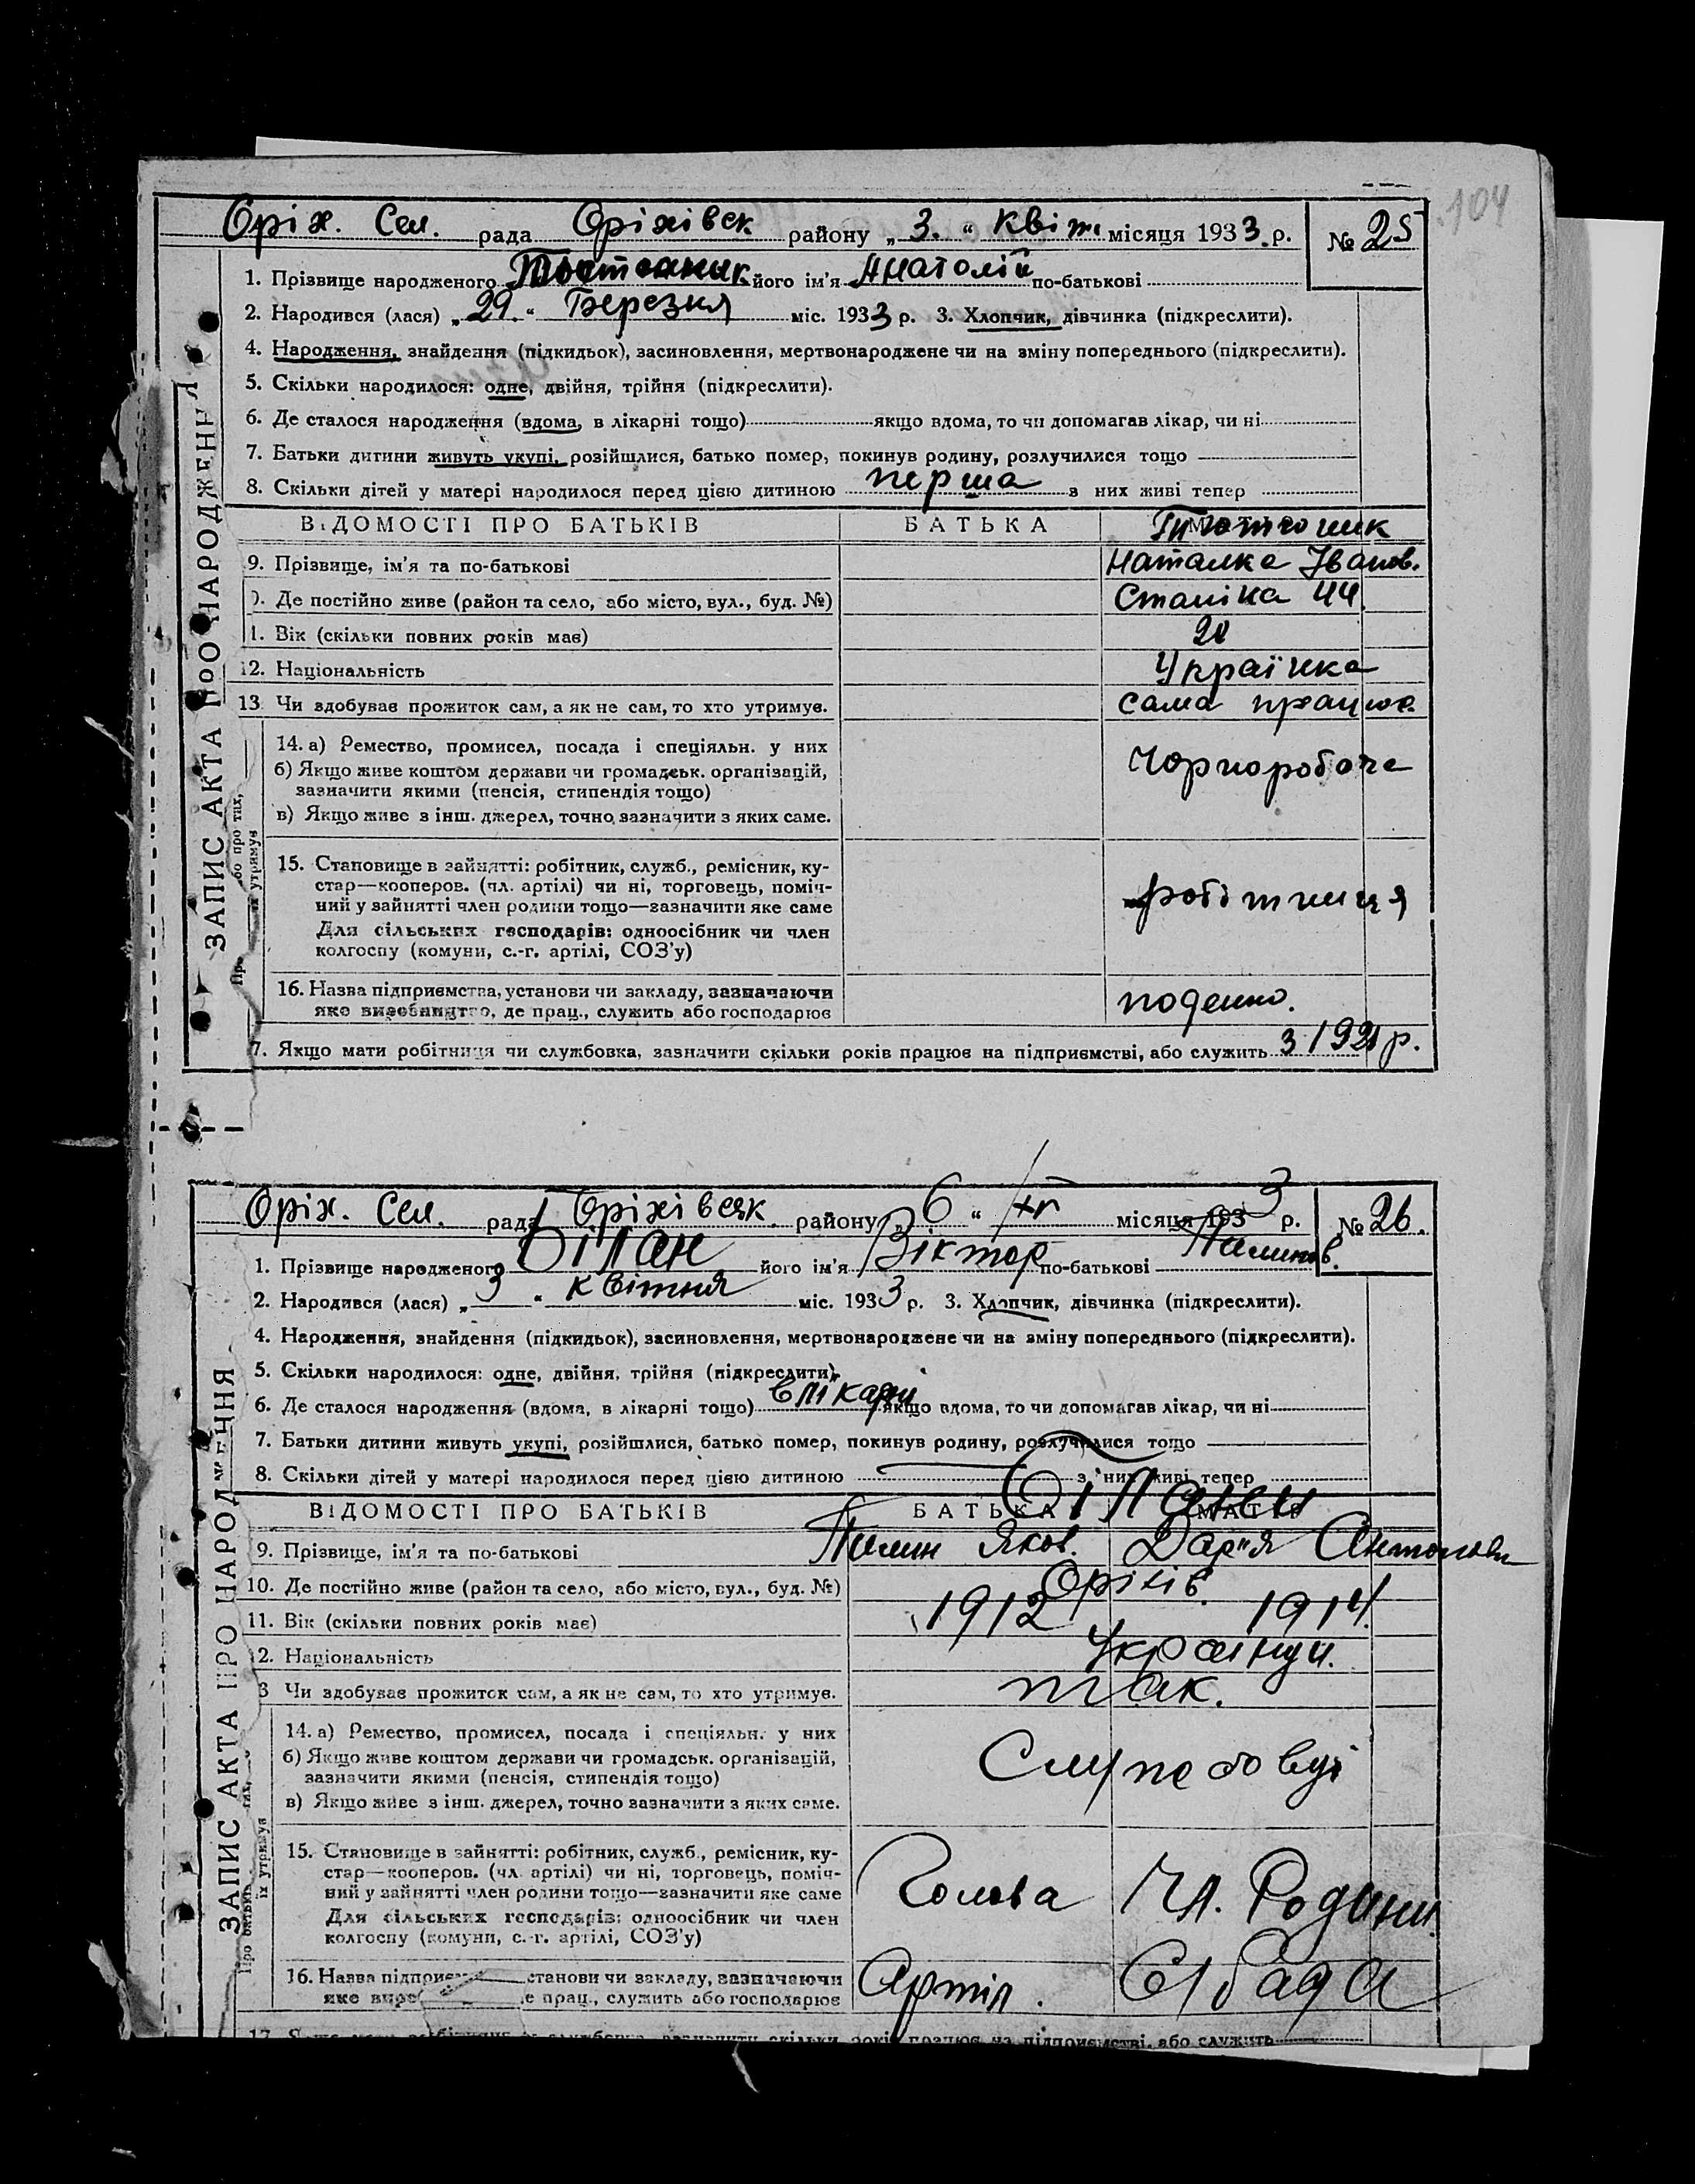 104
Оріх. Сел. рада Оріхівськ району „3.“ Квітн місяця 1933.р. № 25
1. Прізвище народженого його ім'я Анатолій по-батькові
2. Народився (лася) „29.“ Березня міс. 1933 р. 3. Хлопчик, дівчинка (підкреслити).
4. Народження, знайдення (підкидьок), засиновлення, мертвонароджене чи на зміну попереднього (підкреслити).
5. Скільки народилося: одне, двійня, трійня (підкреслити).
6. Де сталося народження (вдома, в лікарні тощо) якщо вдома, то чи допомагав лікар, чи ні
7. Батьки дитини живуть укупі, розійшлися, батько помер, покинув родину, розлучилися тощо
8. Скільки дітей у матері народилося перед цією дитиною перша з них живі тепер
ВІДОМОСТІ ПРО БАТЬКІВ БАТЬКА
9. Прізвище, ім'я та по-батькові Наталка Іванов.
0. Де постійно живе (район та село, або місто, вул., буд. №) Сталіна 44
1. Вік (скільки повних років має) 20
12. Національність Українка
13 Чи здобуває прожиток сам, а як не сам, то хто утримує. сама працює
14. а) Ремество, промисел, посада і спеціяльн. у них
б) Якщо живе коштом держави чи громадськ. організацій, Чорноробоча
зазначити якими (пенсія, стипендія тощо)
в) Якщо живе з інш. джерел, точно зазначити з яких саме.
15. Становище в зайнятті: робітник, служб., ремісник, ку-
стар—кооперов. (чл. артілі) чи ні, торговець, поміч-
ний у зайнятті член родини тощо—зазначити яке саме робітниця
Для сільських господарів: одноосібник чи член
колгоспу (комуни, с.-г. артілі, СОЗ'у)
16. Назва підприємства, установи чи закладу, зазначаючи поденно.
яке виробництво, де прац., служить або господарює
7. Якщо мати робітниця чи службовка, зазначити скільки років працює на підприємстві, або служить з 1931 р.
ЗАПИС АКТА ПРО НАРОДЖЕННЯ
Оріх. Сел. рада Оріхівськ. району „6“ місяця 1933 р. № 26.
1. Прізвище народженого Білан його ім'я Віктор по-батькові Пилипов.
2. Народився (лася) „3“ квітня міс. 1933 р. 3. Хлопчик, дівчинка (підкреслити).
4. Народження, знайдення (підкидьок), засиновлення, мертвонароджене чи на зміну попереднього (підкреслити).
5. Скільки народилося: одне, двійня, трійня (підкреслити).
6. Де сталося народження (вдома, в лікарні тощо) в лікарні якщо вдома, то чи допомагав лікар, чи ні
7. Батьки дитини живуть укупі, розійшлися, батько помер, покинув родину, розлучилися тощо
8. Скільки дітей у матері народилося перед цією дитиною з них живі тепер
ВІДОМОСТІ ПРО БАТЬКІВ БАТЬКА Білани МАТЕРІ
9. Прізвище, ім'я та по-батькові Пилип Яков. Дар'я Антоновн
10. Де постійно живе (район та село, або місто, вул., буд. №) Оріхів.
11. Вік (скільки повних років має) 1912 1914
2. Національність Українци.
3 Чи здобуває прожиток сам, а як не сам, то хто утримує. так.
14. а) Ремество, промисел, посада і спеціяльн. у них
б) Якщо живе коштом держави чи громадськ. організацій,
зазначити якими (пенсія, стипендія тощо)
в) Якщо живе з інш. джерел, точно зазначити з яких саме.
15. Становище в зайнятті: робітник, служб., ремісник, ку-
стар—кооперов. (чл. артілі) чи ні, торговець, поміч-
ний у зайнятті член родини тощо—зазначити яке саме Голова Чл. Родини
Для сільських господарів: одноосібник чи член
колгоспу (комуни, с.-г. артілі, СОЗ'у)
16. Назва станови чи закладу, зазначаючи Артіл.
яке прац., служить або господарює
ЗАПИС АКТА ПРО НАРОДЖЕННЯ